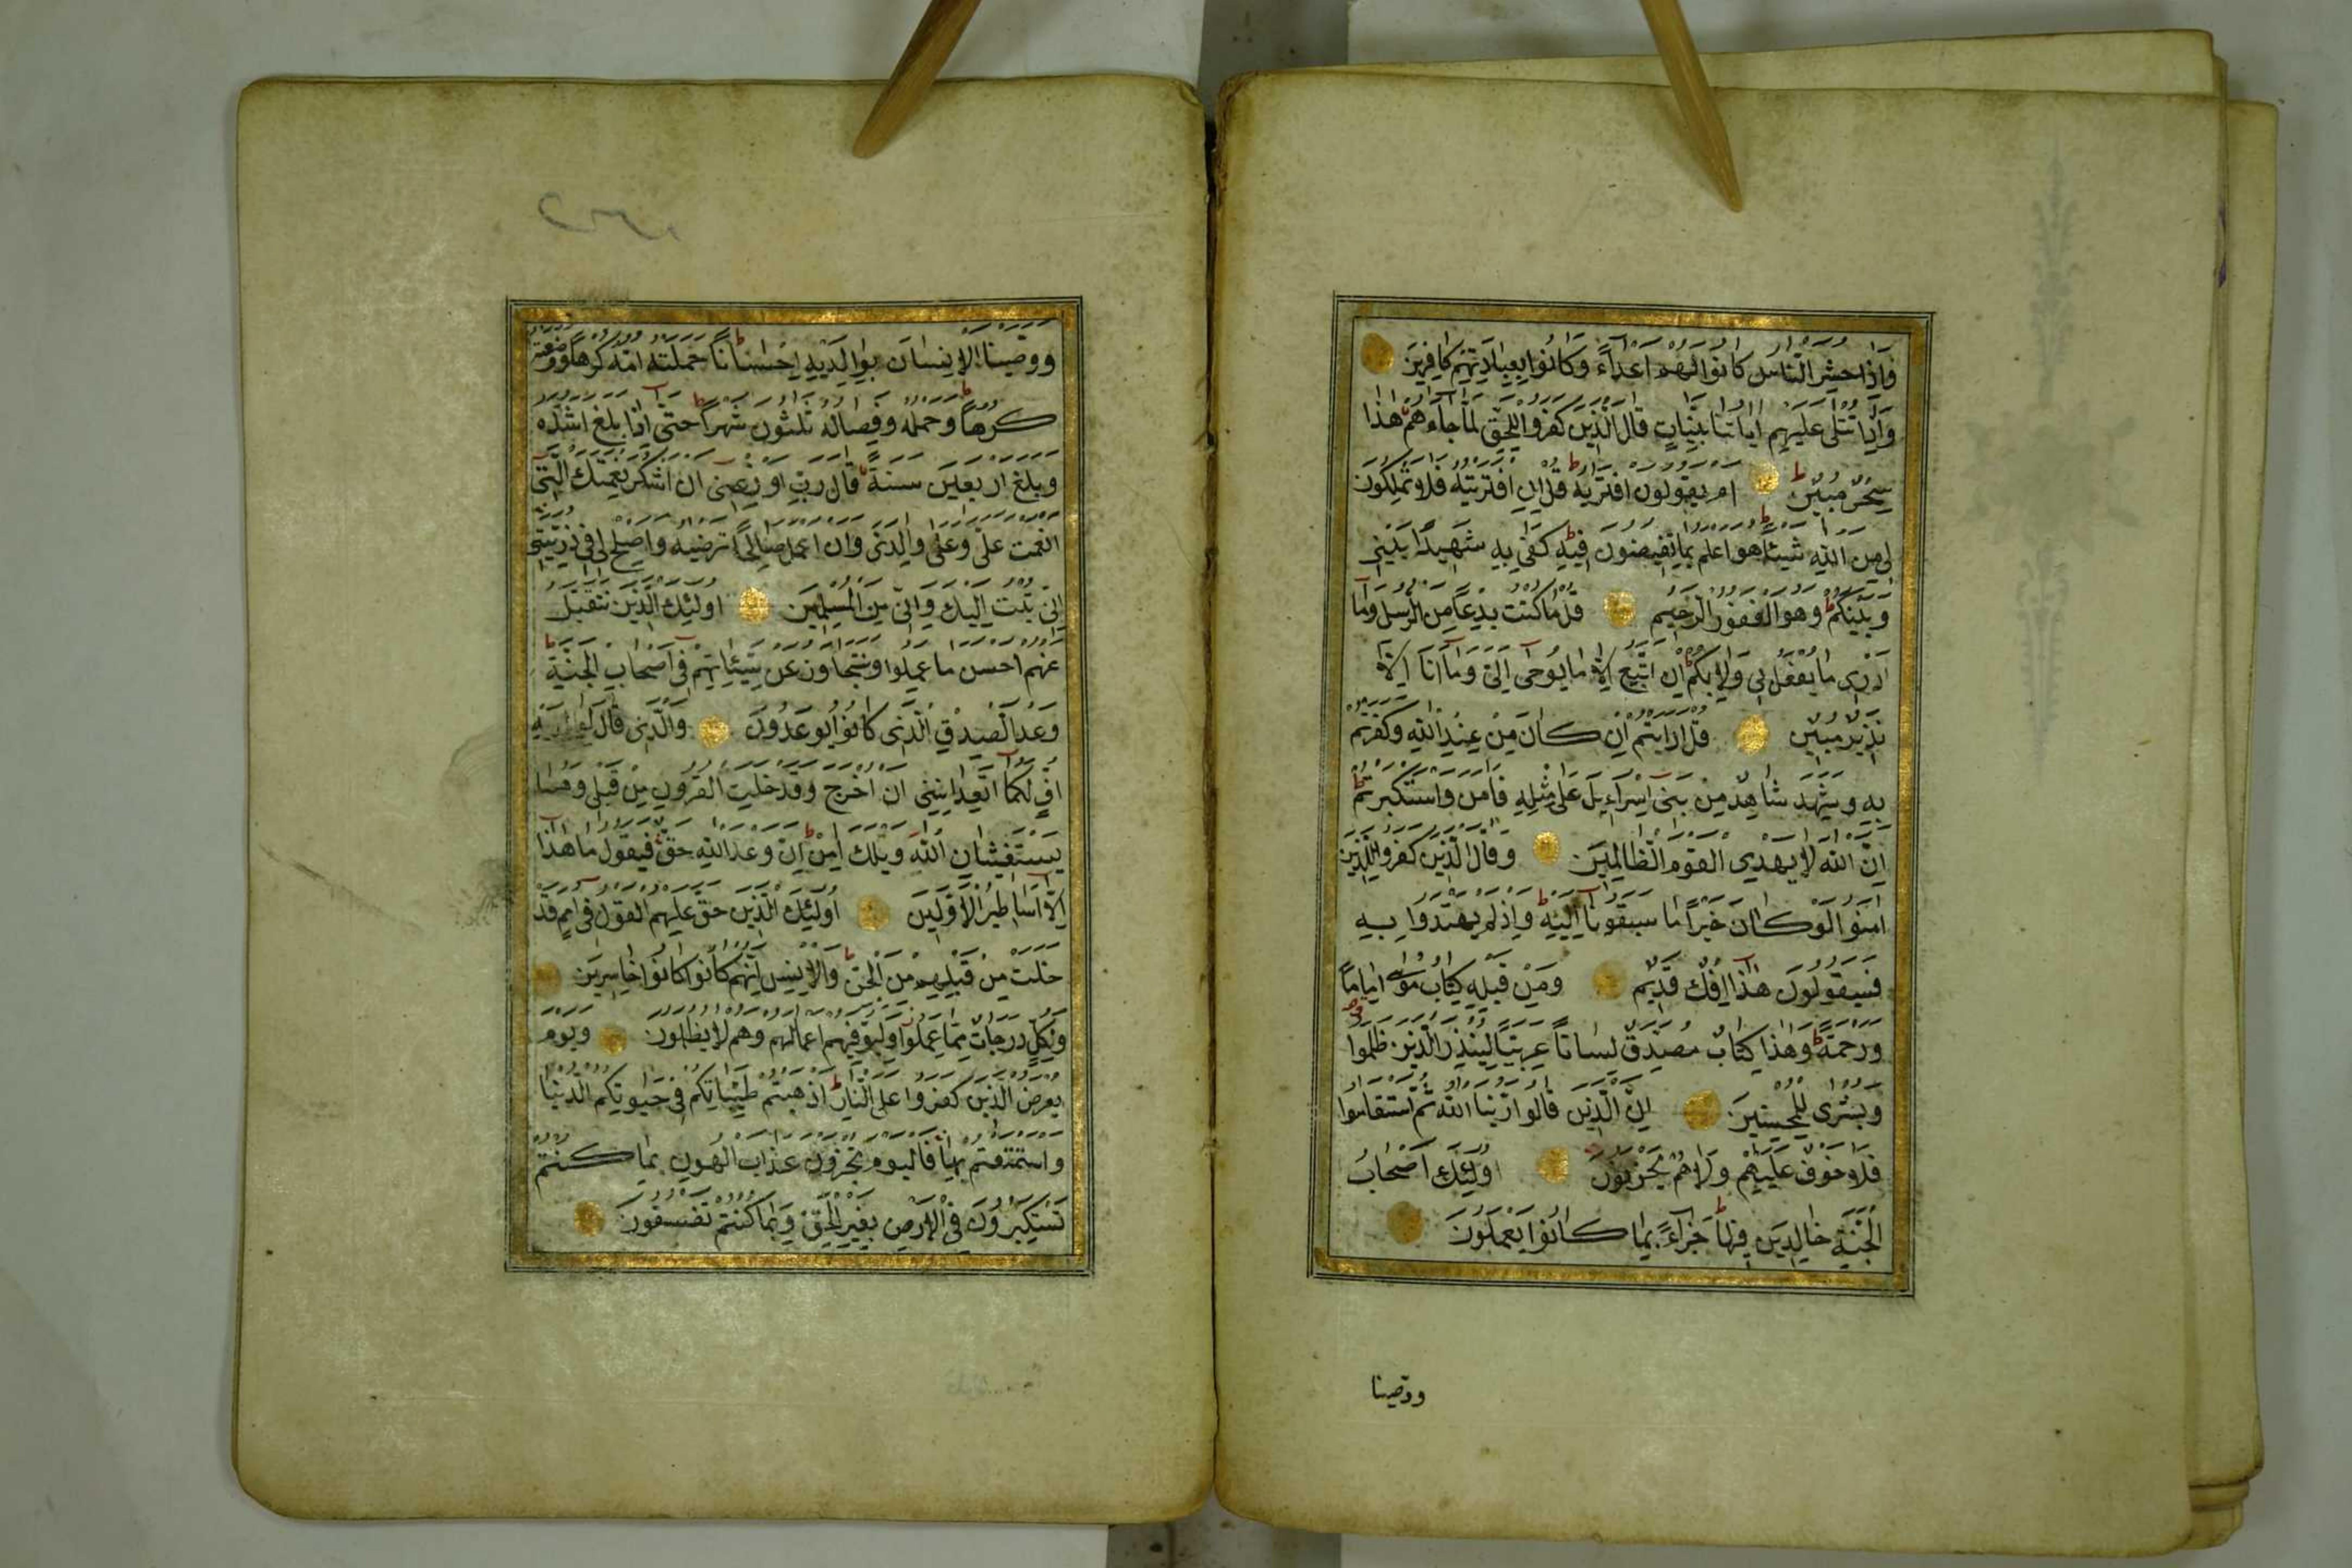 واذا حشر الناس كانوا لهم اعداء وكانوا بعبادتهم كافرين
واذا تتلى عليهم اياتنا بينات قال الذين كفروا للحق لما جاءهم هذا
سحر مبين ام يقولون افتريه قل ان افتريته فلا تملكون
لى من الله شيئا هو اعلم بما تفيضون فيه كفى به شهيدا بينى
وبينكم وهو الغفور الرحيم قل ما كنت بدعا من الرسل وما
ادرى ما يفعل بى ولا بكم ان اتبع الا ما يوحى الى وما انا الا
نذير مبين قل ارايتم ان كان من عند الله وكفرتم
به وشهد شاهد من بنى اسراءيل على مثله فامن واستكبرتم
ان الله لا يهدى القوم الظالمين وقال الذين كفروا للذين
امنوا لو كان خيرا ما سبقونا اليه واذ لم يهتدوا به
فسيقولون هذا افك قديم ومن قبله كتاب موسى اماما
ورحمة وهذا كتاب مصدق لسانا عربيا لينذر الذين ظلموا
وبشرى للمحسنين ان الذين قالوا ربنا الله ثم استقاموا
فلا خوف عليهم ولا هم يحزنون اولئك اصحاب
الجنة خالدين فيها جزاء بما كانوا يعملون
ووصينا
ووصينا الانسان بوالديه احسانا حملته امه كرها ووضعته
كرها وحمله وفصاله ثلثون شهرا حتى اذا بلغ اشده
وبلغ اربعين سنة قال رب اوزعنى ان اشكر نعمتك التى
انعمت على وعلى والدى وان اعمل صالحا ترضيه واصلح لى فى ذريتى
انى تبت اليك وانى من المسلمين اولئك الذين نتقبل
عنهم احسن ما عملوا ونتجاوز عن سيئاتهم فى اصحاب الجنة
وعد الصدق الذى كانوا يوعدون والذى قال لوالديه
اف لكما اتعداننى ان اخرج وقد خلت القرون من قبلى وهما
يستغيثان الله ويلك امن ان وعد الله حق فيقول ما هذا
الا اساطير الاولين اولئك الذين حق عليهم القول فى امم قد
خلت من قبلهم من الجن والانس انهم كانوا كانوا خاسرين
ولكل درجات مما عملوا وليوفيهم اعمالهم وهم لا يظلمون ويوم
يعرض الذين كفروا على النار اذهبتم طيباتكم فى حيوتكم الدنيا
واستمتعتم بها فاليوم تجزون عذاب الهون بما كنتم
تستكبرون فى الارض بغير الحق وبما كنتم تفسقون